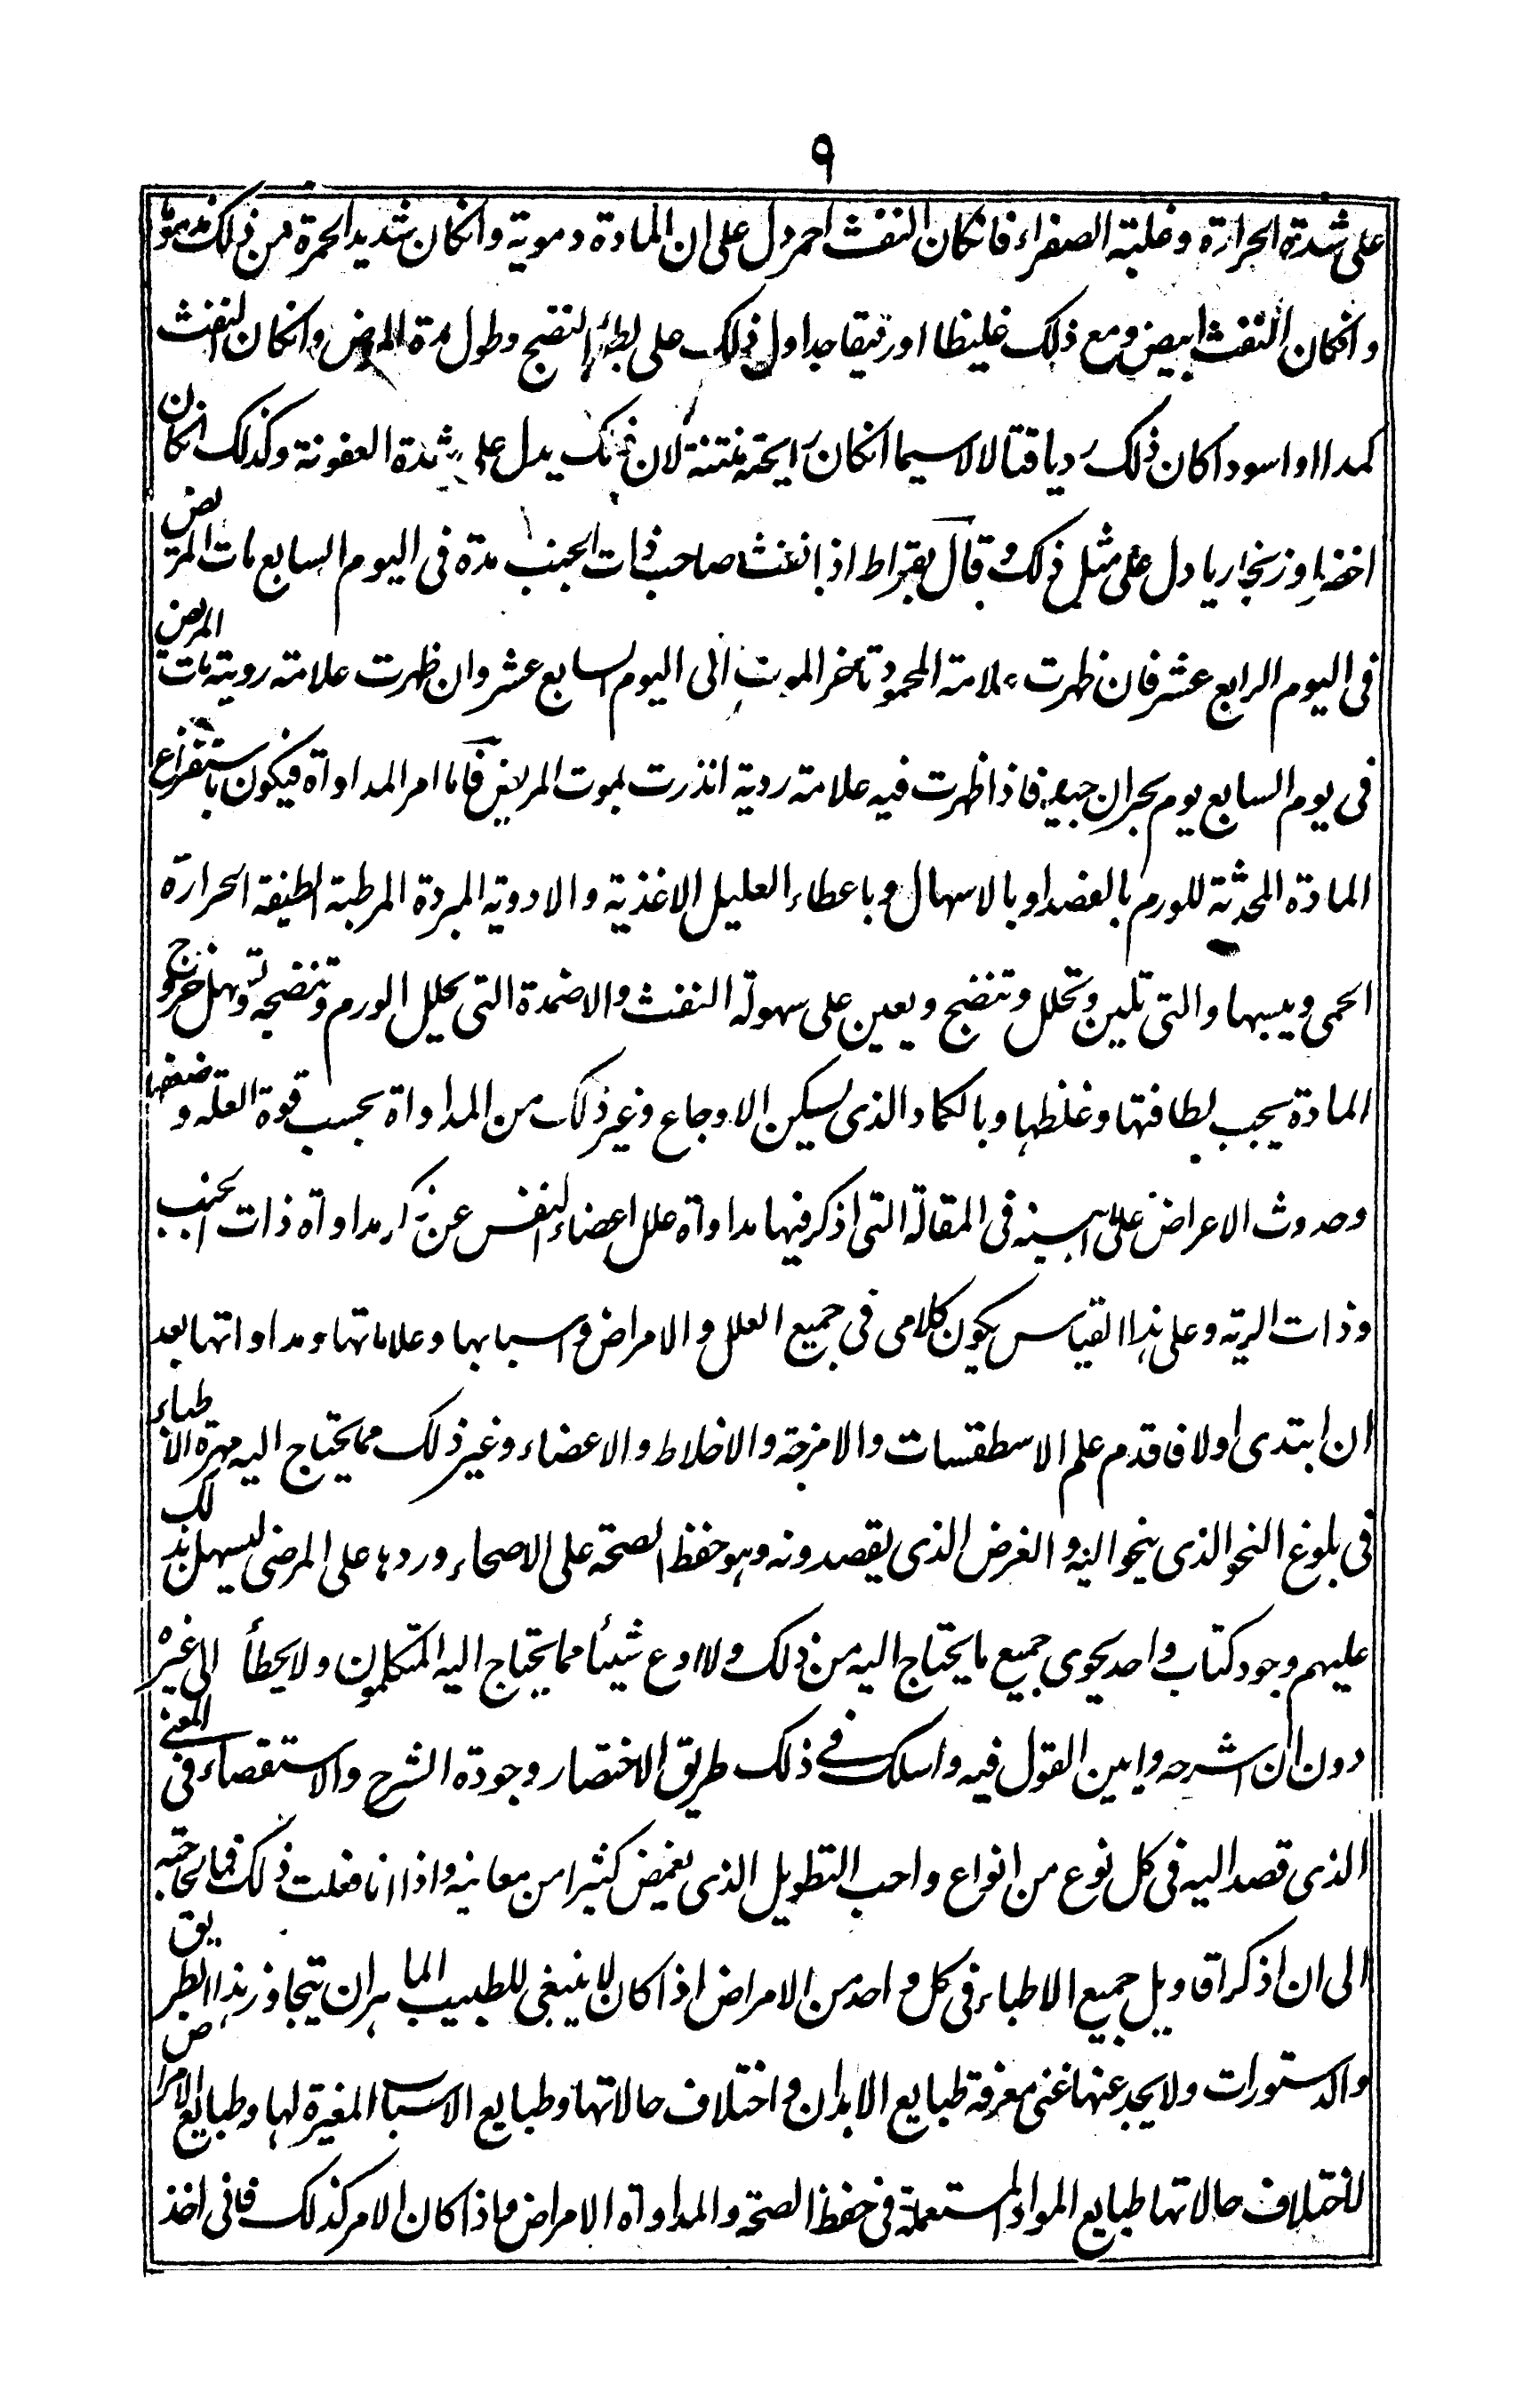 ٩
على شدة الحرارة وغلبة الصفراء فانكان النفث احمر دل على ان المادة دموية وانكان شديد الحمرة من ذلك مذموما
وانكان النفث ابيض ومع ذلك غليظا اورقيقا جدا ول ذلك على بطؤ النضج وطول مدة المرض وانكان النفث
كمدا او اسود اكان ذلك رديا قتالا لاسيما انكان رايحته منتنة لان ذلك يدل على شدة العفونة وكذلك انكان
اخضراوزنجاريا دل على مثل ذلك وقال بقراط اذا نفث صاحب ذات الجنب مدة فى اليوم السابع مات المريض
فى اليوم الرابع عشر فان ظهرت علامة المحمود تاخر الموت الى اليوم السابع عشر وان ظهرت علامته رويته مات المريض
فى يوم السابع يوم بحران جيد فاذا ظهرت فيه علامته ردية انذرت بموت المريض فاما امر المداواة فيكون باستفراغ
المادة المحدثة للورم بالفصد او بالاسهال وباعطاء العليل الاغذية والادوية المبردة المرطبة لطيفة الحرارة
الحمى ويبسها والتى تلين وتحلل وتنضج ويعين على سهولة النفث والاضمدة التى يحلل الورم وتنضجه وتسهل خروج
المادة يجب لطافتها وغلظها وبالكماد الذى يسكن الاوجاع وغير ذلك من المداواة بحسب قوة العله وضعفها
وحدوث الاعراض على ما سبينه فى المقالة التى اذكر فيها مداواة علل اعضاء النفس عن ذكر مداواة ذات الجنب
وذات الريه وعلى هذا القياس يكون كلامى فى جميع العلل والامراض واسبابها وعلاماتها ومداواتها بعد
ان ابتدى اولا فاقدم علم الاسطقسات والامزجة والاخلاط والاعضاء وغير ذلك مما يحتاج اليه مهرة الاطباء
فى بلوغ النحو الذى ينحو اليه والغرض الذى يقصدونه وهو حفظ الصحة على الاصحاء وردها على المرضى ليسهل بذلك
عليهم وجود كتاب واحد يحوى جميع ما يحتاج اليه من ذلك ولا ادع شيئا مما يحتاج اليه المتكلمون ولا يحطأ الى غيره
دون ان اشرحه وابين القول فيه واسلك فى ذلك طريق الاختصار وجودة الشرح والاستقصاء فى المعنى
الذى قصد اليه فى كل نوع من انواع واحب التطويل الذى يغمض كثيرا من معانيه واذا انا فعلت ذلك فما بى حاجته
الى ان اذكر اقاويل جميع الاطباء فى كل واحد من الامراض اذا كان لا ينبغى للطبيب الماهران يتجاوز هذا الطريق
والدستورات ولا يجد عنها غنى معرفة طبايع الابدان واختلاف حالاتها وطبايع الاسباب المغيرة لها وطبايع الامراض
لاختلاف حالاتها طبايع المواد المستعملة فى حفظ الصحة والمداواة الامراض واذا كان الامر كذلك فانى اخذ